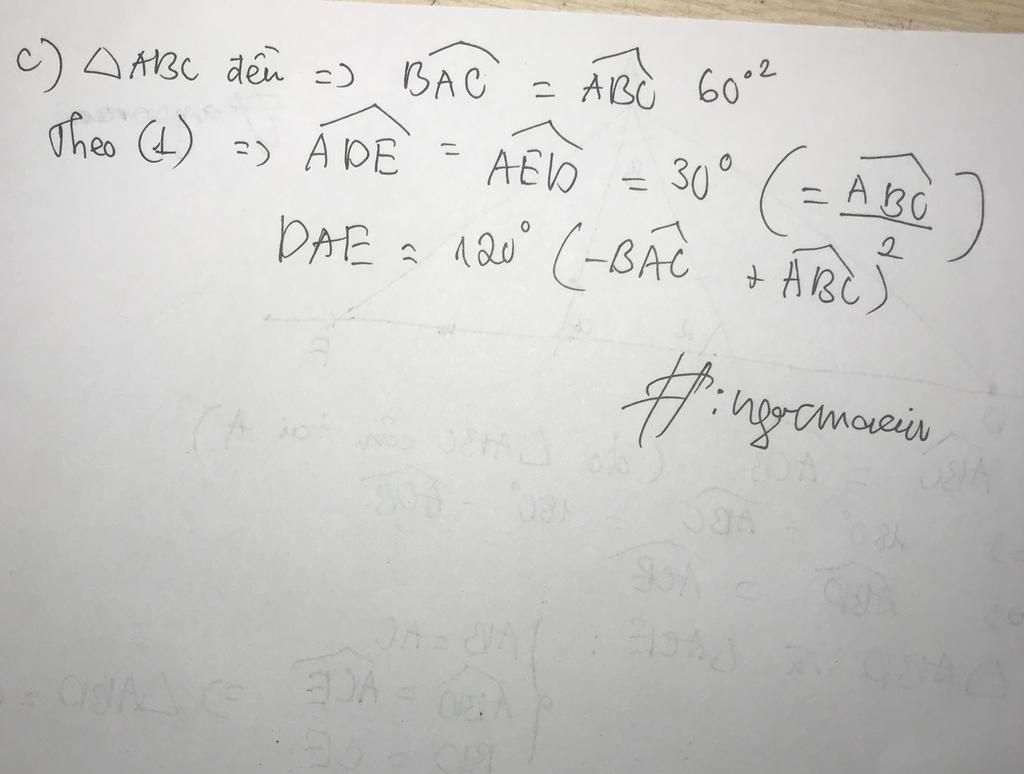 c) △ABC đều => BAC = ABC 60°²
Theo (1) => ADE = AED = 30° (= ABC/2)
DAE = 120° (-BAC + ABC)
#:ngocmaeiu